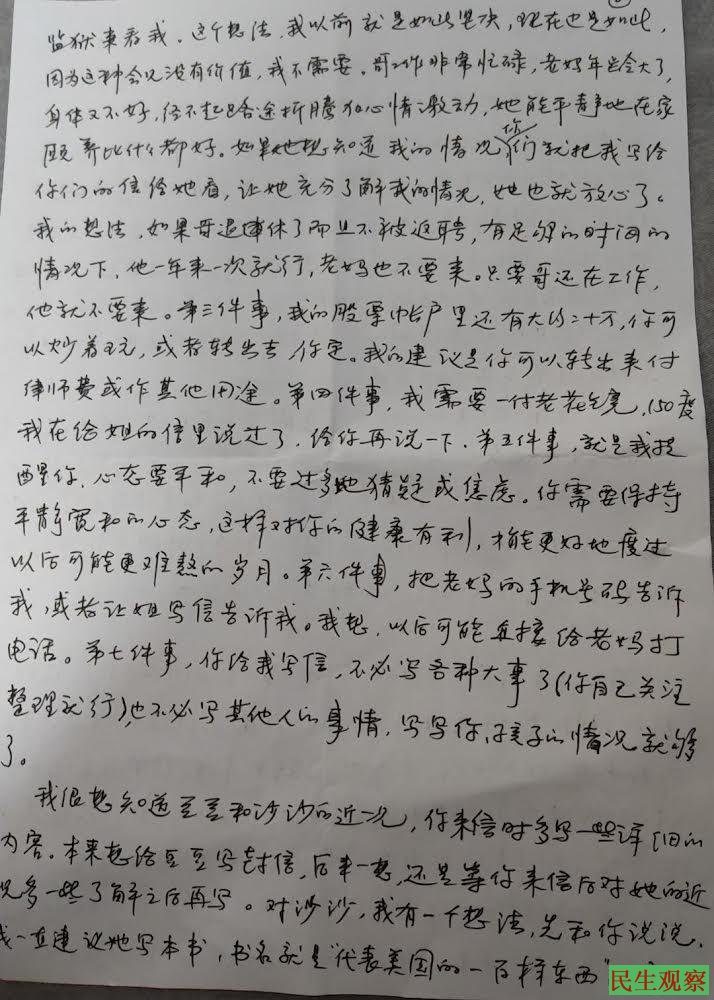 监狱来看我。这个想法,我以前就是如此坚决,现在也是如此,
因为这种会见没有价值,我不需要。哥工作非常忙碌,老妈年龄大了,
身体又不好,经不起路途折腾和心情激动,她能平静地在家
颐养比什么都好。如果她想知道我的情况,你们就把我写给
你们的信给她看,让她充分了解我的情况,她也就放心了。
我的想法,如果哥退休了而且不被返聘,有足够的时间的
情况下,他一年来一次就行,老妈也不要来。只要哥还在工作,
他就不要来。第三件事,我的股票帐户里还有大约二十万,你可
以炒着玩,或者转出去,你定。我的建议是你可以转出来付
律师费或作其他用途。第四件事,我需要一付老花镜,150度
我在给姐的信里说过了,给你再说一下。第五件事,就是我提
醒你,心态要平和,不要过多地猜疑或焦虑。你需要保持
平静宽和的心态,这样对你的健康有利,才能更好地度过
以后可能更难熬的岁月。第六件事,把老妈的手机号码告诉
我,或者让姐写信告诉我。我想,以后可能直接给老妈打
电话。第七件事,你给我写信,不必写各种大事了(你自己关注
整理就行),也不必写其他人的事情,写写你、孩子的情况就够
了。
我很想知道豆豆和沙沙的近况,你来信时多写一些详细的
内容。本来想给豆豆写封信,后来一想,还是等你来信后对她的近
况多一些了解之后再写。对沙沙,我有一个想法,先和你说说,
我一直建议她写本书,书名就是"代表美国的一百样东西"
民生观察